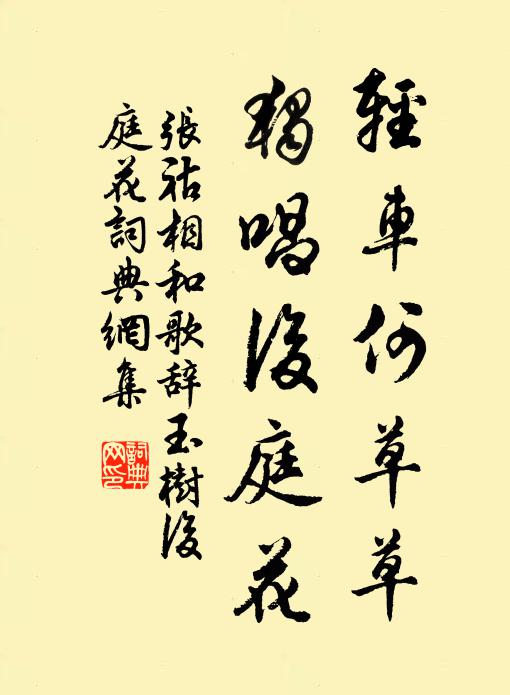 輕車何草草
獨唱後庭花
張祜相和歌辭玉樹後
庭花詞典網集
詞典網印